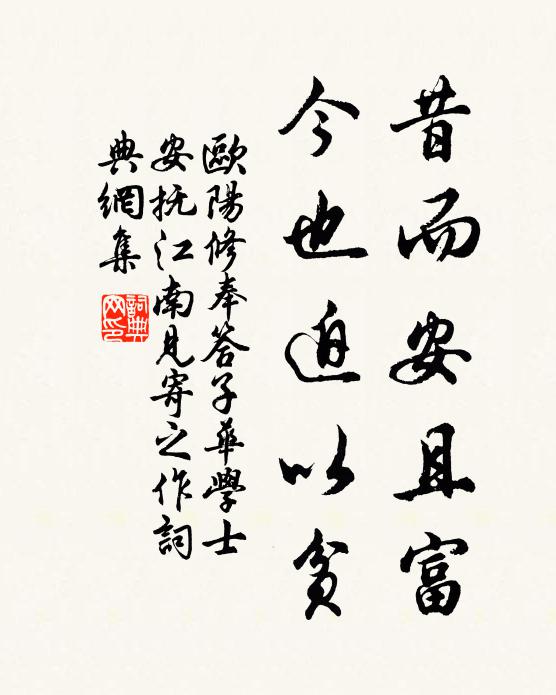 昔而安且富
今也迫以貧
歐陽修奉答子華學士
安撫江南見寄之作詞
典網集
詞典
网印